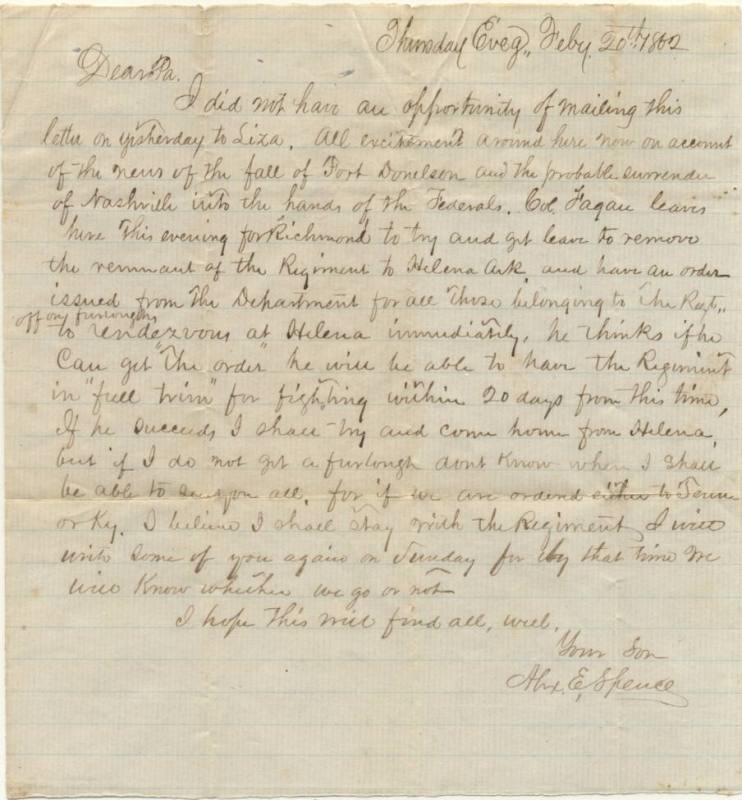 Thursday Eveg,, Feby. 20th 1862
Dear Pa.
I did not have an opportunity of mailing this
letter on yisterday to Liza. All excitement around here now on account
of the news of the fall of Fort Donelson and the probable surrender
of Nashville into the hands of the Federals. Col. Fagan leaves
here this evening for Richmond to try and get leave to remove
the remnant of the Regiment to Helena Ark and have an order
issued from the Department for all those belonging to the Regt,,
off on furloughs
to rendezvous at Helena immediately, he thinks if he
Can get "the order" he will be able to have the Regiment
in "full trim" for fighting within 20 days from this time,
If he succeeds I shall try and come home from Helena,
but if I do not get a furlough dont Know when I shall
be able to see you all. for if we are ordered either to Tenn
or Ky. I believe I shall stay with the Regiment, I will
write some of you again on Sunday for by that time we
will Know whether we go or not
I hope this will find all, well.
Your Son
Alex. E. Spence